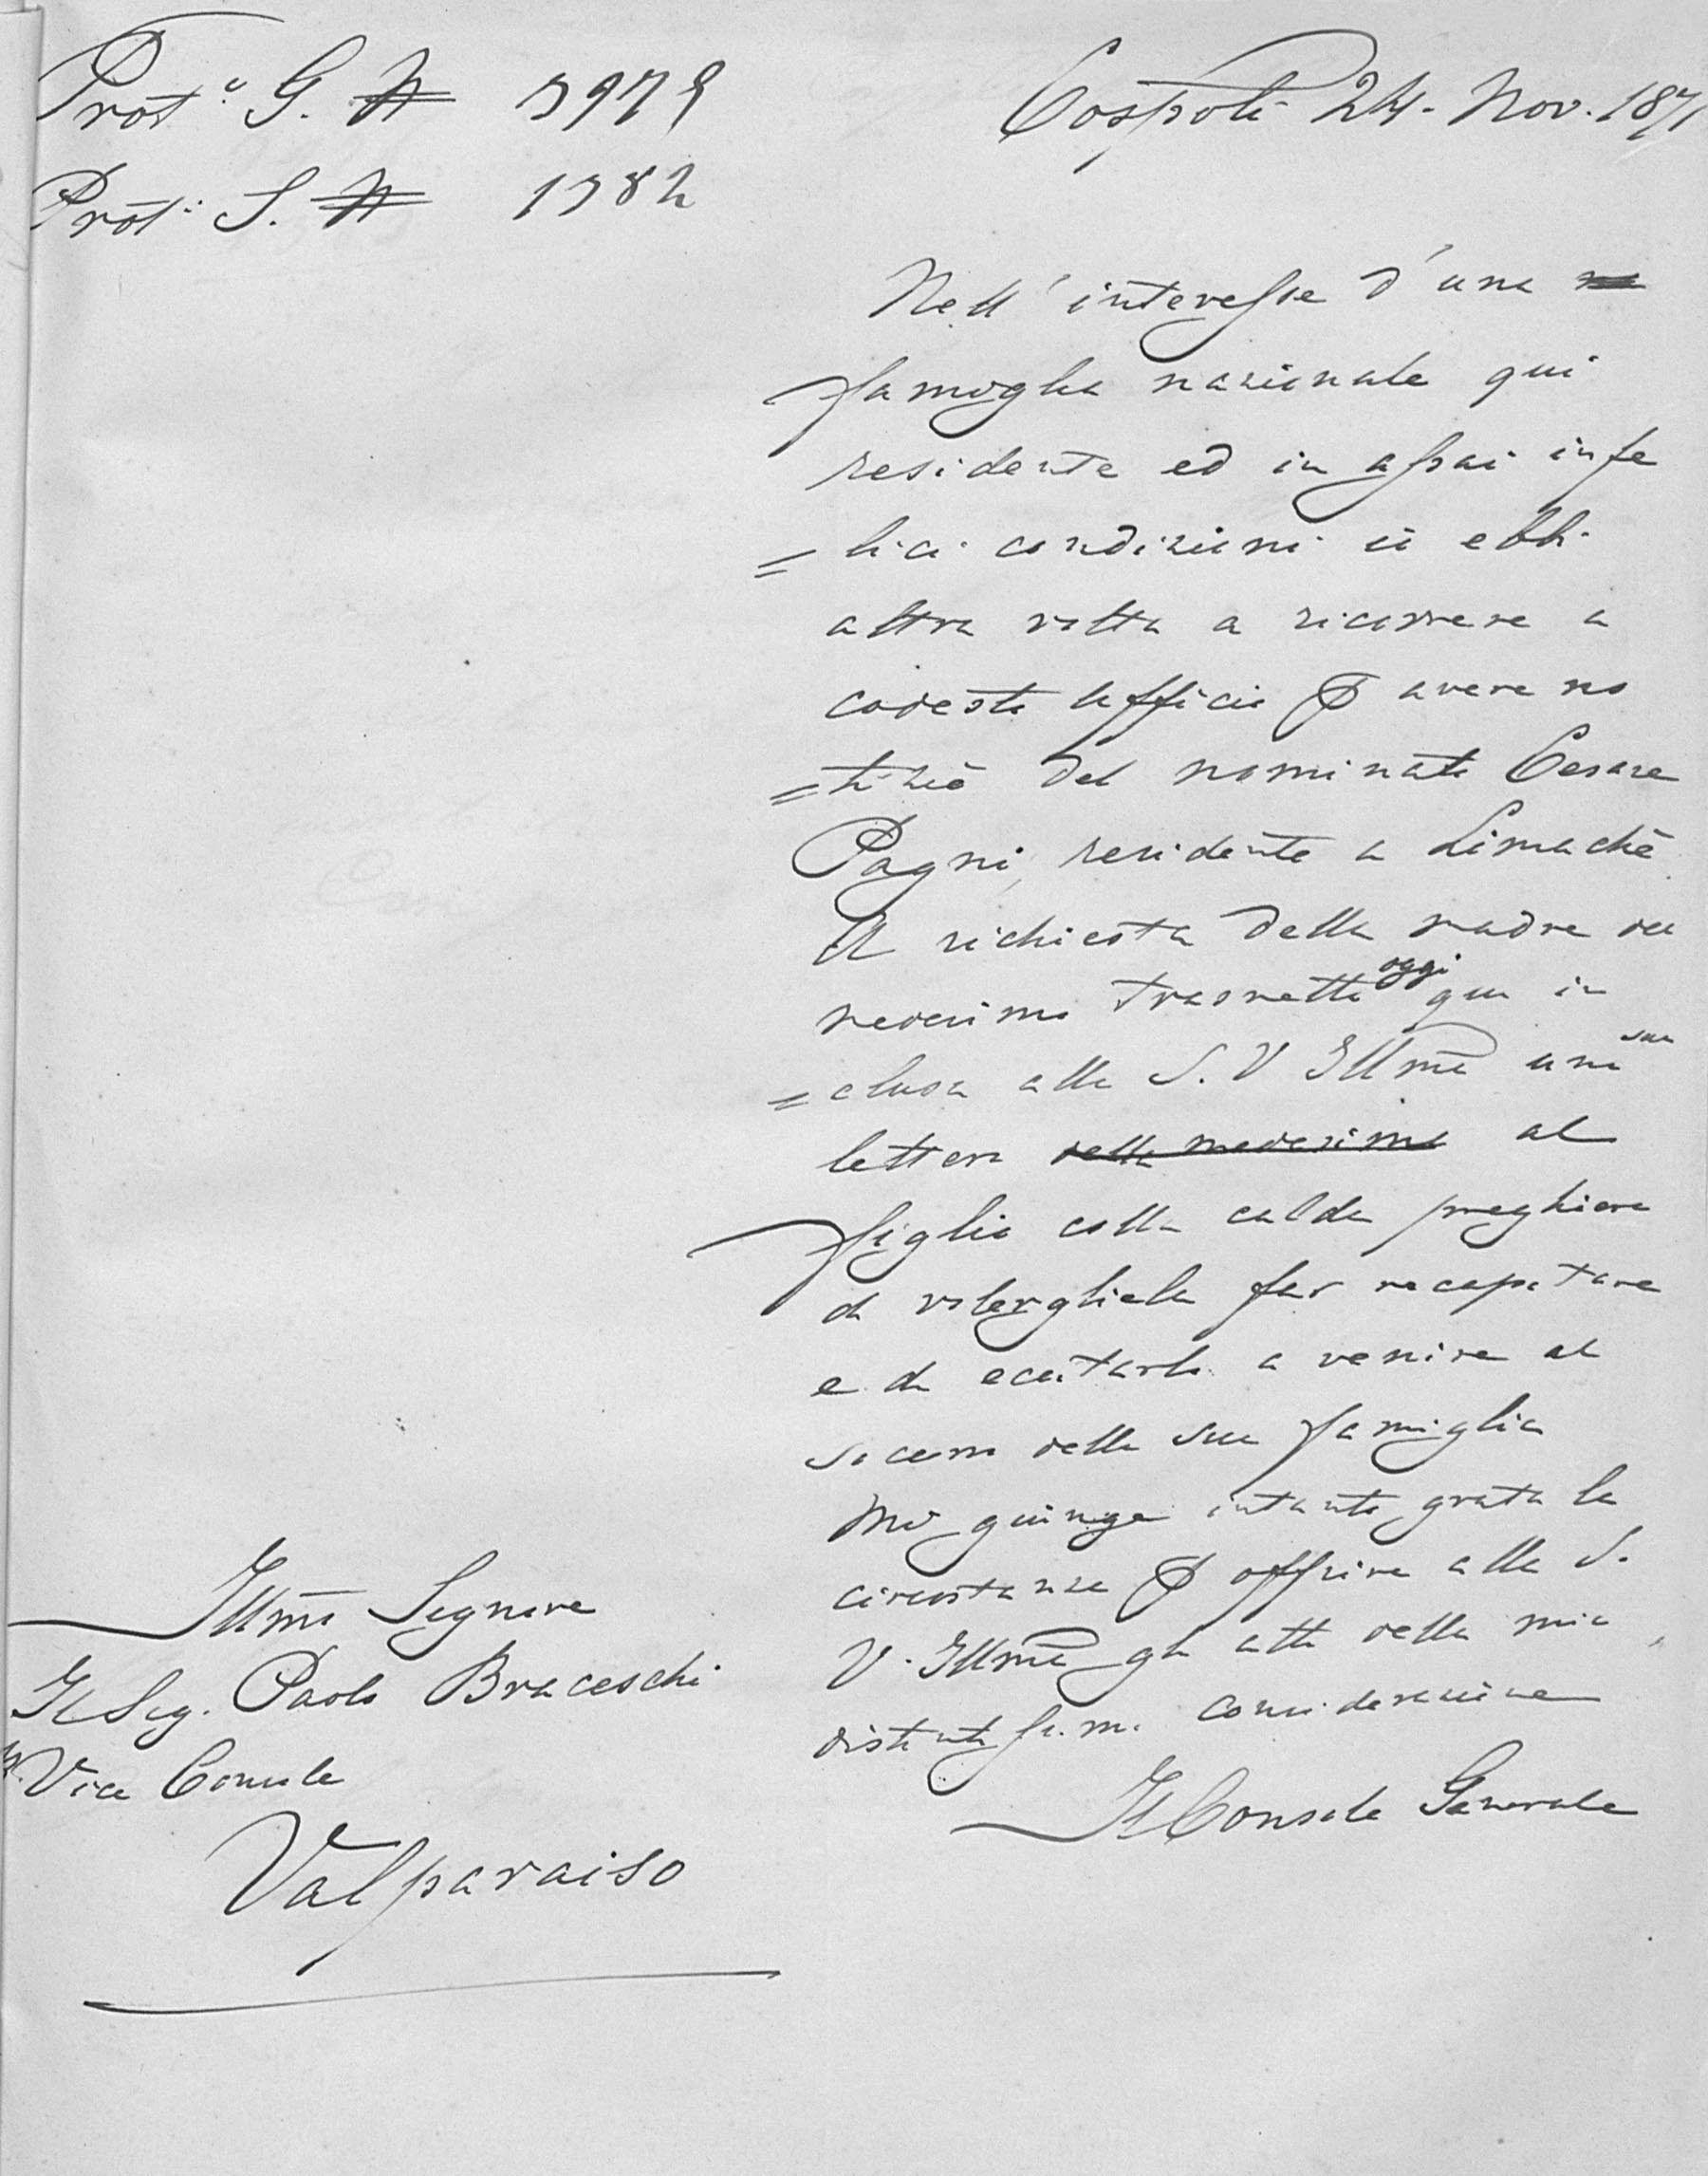 Prot.º G. N 3979
Prot.º S. N 1382
Cospoli 24. Nov. 187
Nell'interesse d'una
famiglia nazionale qui
residente ed in assai infe
= lici condizioni si ebbe
altra volta a ricorrere a
codesto Ufficio avere no
= tizie del nominato Cesare
Pagni, residente a Limachè
A richiesta della madre del
medesimo trasmetto oggi qui in
= clusa alla S. V Illma una sua
lettera della medesima al
figlio colla calda preghiera
di volergliela far recapitare
e di eccitarlo a venire al
soccorso della sua famiglia
Mi giunge intanto grata la
circostanza offrire alla S.
V. Illma gli atti della mia
distintissima considerazione
Il Console Generale
Illmo Signore
Il Sig. Paolo Braceschi
Vice Console
Valparaiso